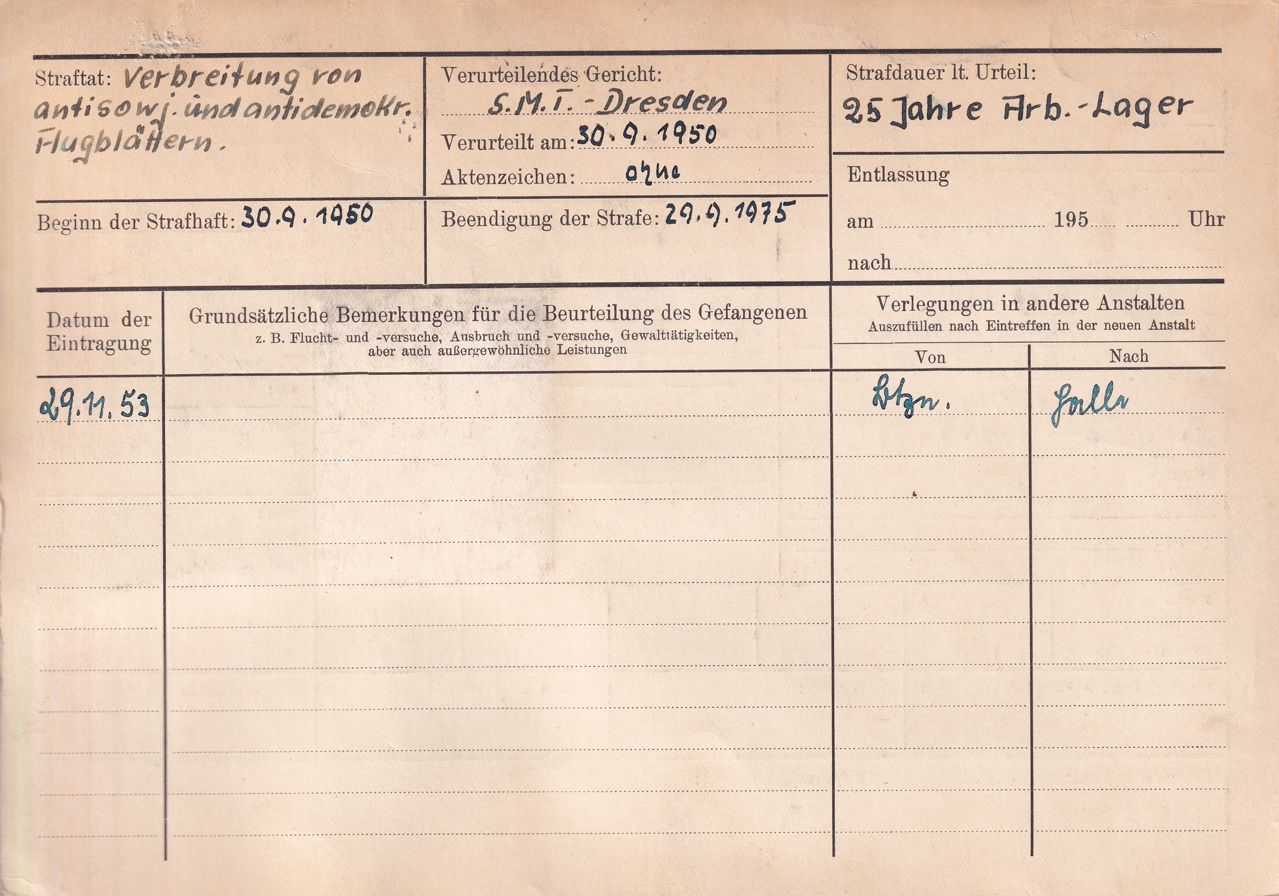 Straftat: Verbreitung von
antisowj. und antidemokr.
Flugblättern.
Verurteilendes Gericht:
S.M.T. - Dresden
Verurteilt am: 30.9.1950
Aktenzeichen: ohne
Strafdauer lt. Urteil:
25 Jahre Arb.-Lager
Beginn der Strafhaft: 30.9.1950
Beendigung der Strafe: 29.9.1975
Entlassung
am 195 Uhr
nach
Datum der
Eintragung
Grundsätzliche Bemerkungen für die Beurteilung des Gefangenen
z. B. Flucht- und -versuche, Ausbruch und -versuche, Gewalttätigkeiten,
aber auch außergewöhnliche Leistungen
Verlegungen in andere Anstalten
Auszufüllen nach Eintreffen in der neuen Anstalt
Von Nach
29.11.53 Btzn. Halle